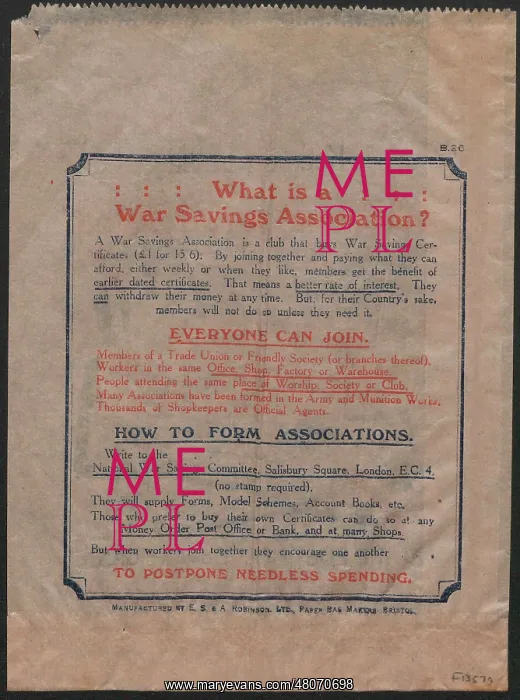 B.26
: : : What is a : : :
War Savings Association?
A War Savings Association is a club that buys War Saving Cer-
tificates (£1 for 15/6). By joining together and paying what they can
afford, either weekly or when they like, members get the benefit of
earlier dated certificates. That means a better rate of interest. They
can withdraw their money at any time. But, for their Country's sake,
members will not do so unless they need it.
EVERYONE CAN JOIN.
Members of a Trade Union or Friendly Society (or branches thereof).
Workers in the same Office, Shop, Factory or Warehouse.
People attending the same place of Worship, Society or Club.
Many Associations have been formed in the Army and Munition Works.
Thousands of Shopkeepers are Official Agents.
HOW TO FORM ASSOCIATIONS.
Write to the
National War Savings Committee, Salisbury Square, London, E.C. 4,
(no stamp required),
They will supply Forms, Model Schemes, Account Books, etc.
Those who prefer to buy their own Certificates can do so at any
Money Order Post Office or Bank, and at many Shops.
But when workers join together they encourage one another
TO POSTPONE NEEDLESS SPENDING.
MANUFACTURED BY E. S. & A. ROBINSON, LTD., PAPER BAG MAKERS BRISTOL.
ME
PL
ME
PL
www.maryevans.com/48070698